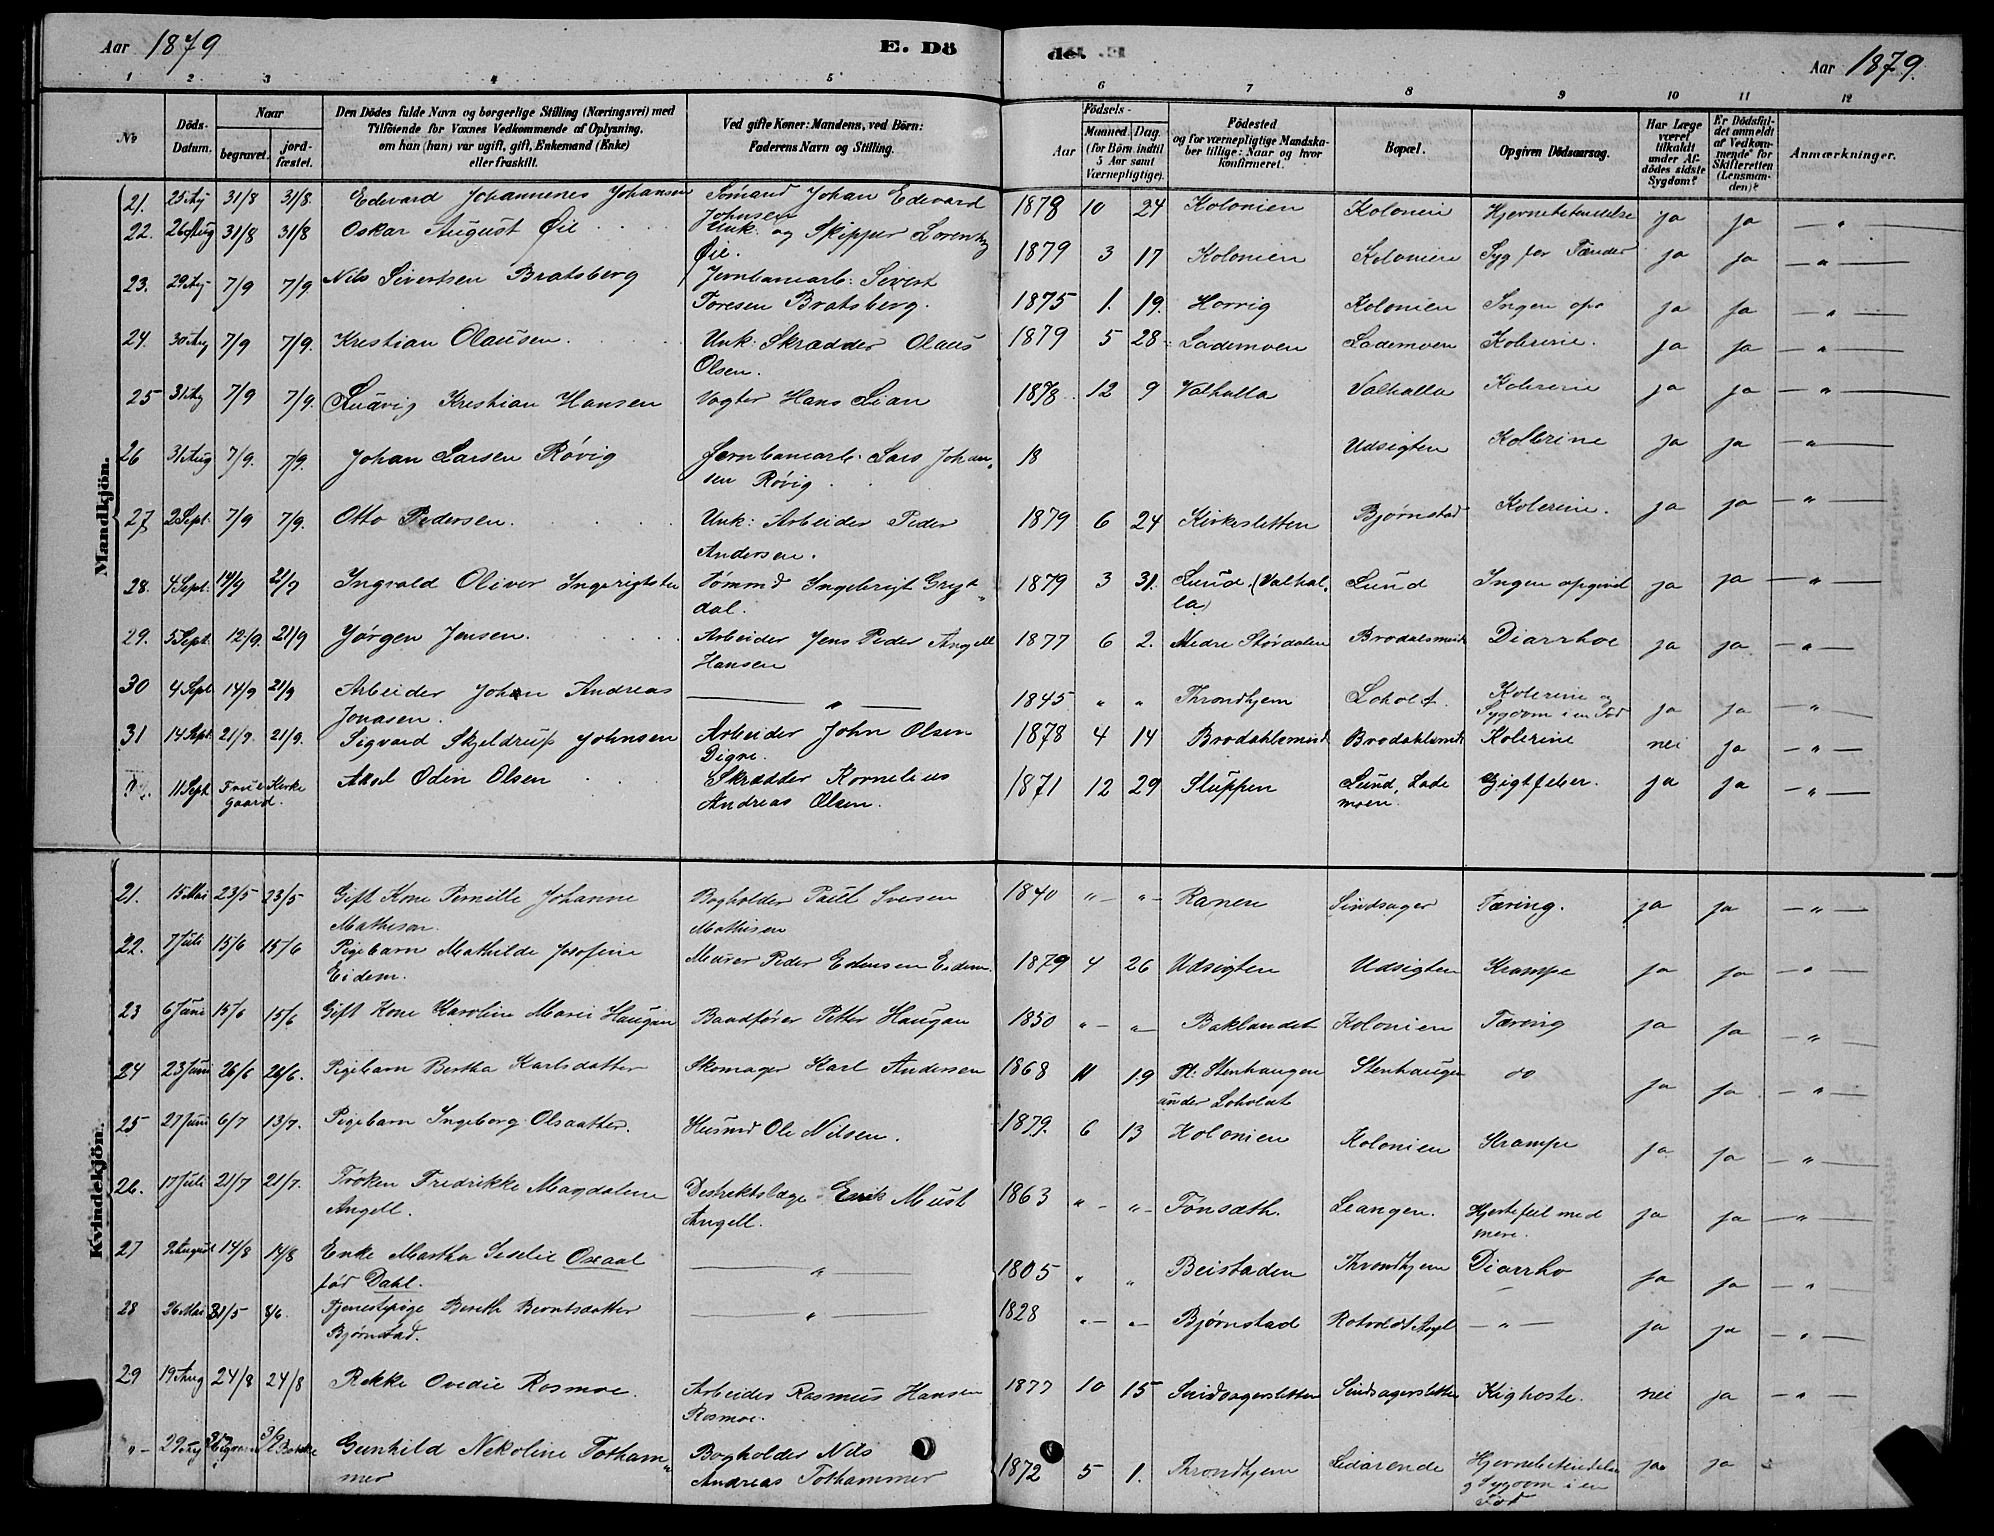 Aar 1879 E. Dö de. Aar 1879.
1 2. 3 4 5 6 7 8 9 10 11 12
No Döds-Datum. Naar begravet. jordfæstet. Den Dödes fulde Navn og borgerlige Stilling (Næringsvei) med Tilföiende for Voxnes Vedkommende af Oplysning, om han (hun) var ugift, gift, Enkemand (Enke) eller fraskilt. Ved gifte Koner: Mandens, ved Börn: Faderens Navn og Stilling. Aar Födsels- Maaned. Dag. (for Börn indtil 5 Aar samt Værnepligtige). Födested og for værnepligtige Mandskaber tillige: Naar og hvor konfirmeret. Bopæl. Opgiven Dödsaarsag. Har Læge været tilkaldt under Afdödes sidste Sygdom? Er Dödsfaldet anmeldt af Vedkommende for Skifteretten (Lensmanden)? Anmærkninger.
Mandkjön.
21. 25 Aug 31/8 31/8. Edvard Johannenes Johansen Sömand Johan Edevard Johnsen 1878 10 24 Kolonien Kolonien Hjernebetendelse ja ja — " —
22. 26 Aug 31/8 31/8 Oskar August Øie Unk. og Skipper Lorentz Øie. 1879 3 17 Kolonien Kolonien Syg for Tænder ja ja — " —
23. 29 Aug 7/9 7/9 Nils Sivertsen Bratsberg Jernbanearb: Sivert Toresen Bratsberg. 1875 1. 19. Horrig Kolonien Ingen opg ja ja — " —
24. 30 Aug 7/9 7/9. Kristian Olausen. Unk: Skrædder Olaus Olsen. 1879 5 28 Lademoen Lademoen Kolerine. ja ja — " —
25 31 Aug 7/9 7/9. Ludvig Kristian Hansen Vogter Hans Lian 1878 12 9 Valhalla Valhalla Kolerine ja ja — " —
26 31 Aug 7/9. 7/9. Johan Larsen Røvig Jernbanearb. Lars Johansen Røvig. 18 Udsigten Kollerine ja ja — " —
27 2 Sept. 7/9 7/9. Otto Pedersen. Unk: Arbeider Peder Andersen. 1879 6 24 Kirkesletten Bjørnstad Kolerine. ja ja — " —
28. 4 Sept. 14/9 21/9 Ingvald Oliver Ingerigtsen Tømmd Ingebrigt Grytdal. 1879 3 31. Lund (Valhalla) Lund Ingen opgivd ja ja — " —
29. 5 Sept. 12/9. 21/9 Jørgen Jensen. Arbeider Jens Peder Angell Hansen 1877 6 2. Nedre Størdalen Brodalsmind Diarrhoe ja ja — " —
30 4 Sept 14/9 21/9 Arbeider Johan Andreas Jonasen. — " — 1845 " " Throndhjem Loholt. Kolerine og Sygdom i en Fod ja ja — " —
31 14 Sept. 21/9. 21/9. Sigvard Skjeldrup Johnsen Arbeider John Olsen Digre. 1878 4 14 Brodahlsmind Brodahlsmind Kolerine nei ja — " —
11 Sept Frue Kirkegaard. Axel Odin Olsen Skrædder Kornelius Andreas Olsen. 1871 12 29 Sluppen Lund, Lademoen. Gigtfeber. ja ja — " —
Kvindekjön.
21. 15 Mai 23/5 23/5 Gift Kone Pernille Johanne Mathisen. Bogholder Paul Ivesen Mathisen 1840 " — " — Ranen Sindsager Tæring. ja ja — " —
22. 7 Juli 15/6 15/6 Pigebarn Mathilde Josefine Eidem. Murer Peder Estensen Eidem. 1879 4 26 Udsigten Udsigten Krampe ja ja — " —
23 6 Juni 15/6 15/6 Gift Kone Karoline Marie Haugan Baadfører Petter Haugan 1850 " — " — Baklandet Kolonien Tæring ja ja — " —
24 23 Juni 26/6 26/6. Pigebarn Bertha Karlsdatter Skomager Karl Andersen 1868 11 19 Pl: Stenhaugen under Loholdt Stenhaugen do ja ja — " —
25 27 Juni 6/7 13/7. Pigebarn Ingeborg Olsdatter. Husmd Ole Nilsen. 1879. 6 13 Kolonien Kolonien Krampe ja ja — " —
26. 17 Juli 21/7 21/7. Frøken Fredrikke Magdalene Angell. Destriktslæge Erik Must Angell. 1863 " — " — Tønsæth. Leangen. Hjertefeil med mere. ja ja — " —
27 9 August 14/8 14/8 Enke Martha Seselie Oxaal fød Dahl. — " — 1805 " " Beistaden Throndhjem Diarrho ja ja — " —
28 26 Mai 31/5 8/6. Tjenestepige Bereth Berntsdatter Bjørnstad. — " — 1828 " — " — Bjørnstad Rotvoldt Asyl — " — ja ja — " —
29 19 Aug 24/8 24/8 Rekke Ovedie Rosmoe. Arbeider Rasmus Hansen Rosmoe. 1877 10 15 Sindsagersletten Sindsagersletten Kighoste. nei ja — " —
" — 29 Aug 3/9 Gunhild Nekoline Tothammer Bogholder Nils Andreas Tothammer 1872 5 1. Throndhjem Ledarende Hjernebetendelse og Sygdom i en Fod ja ja